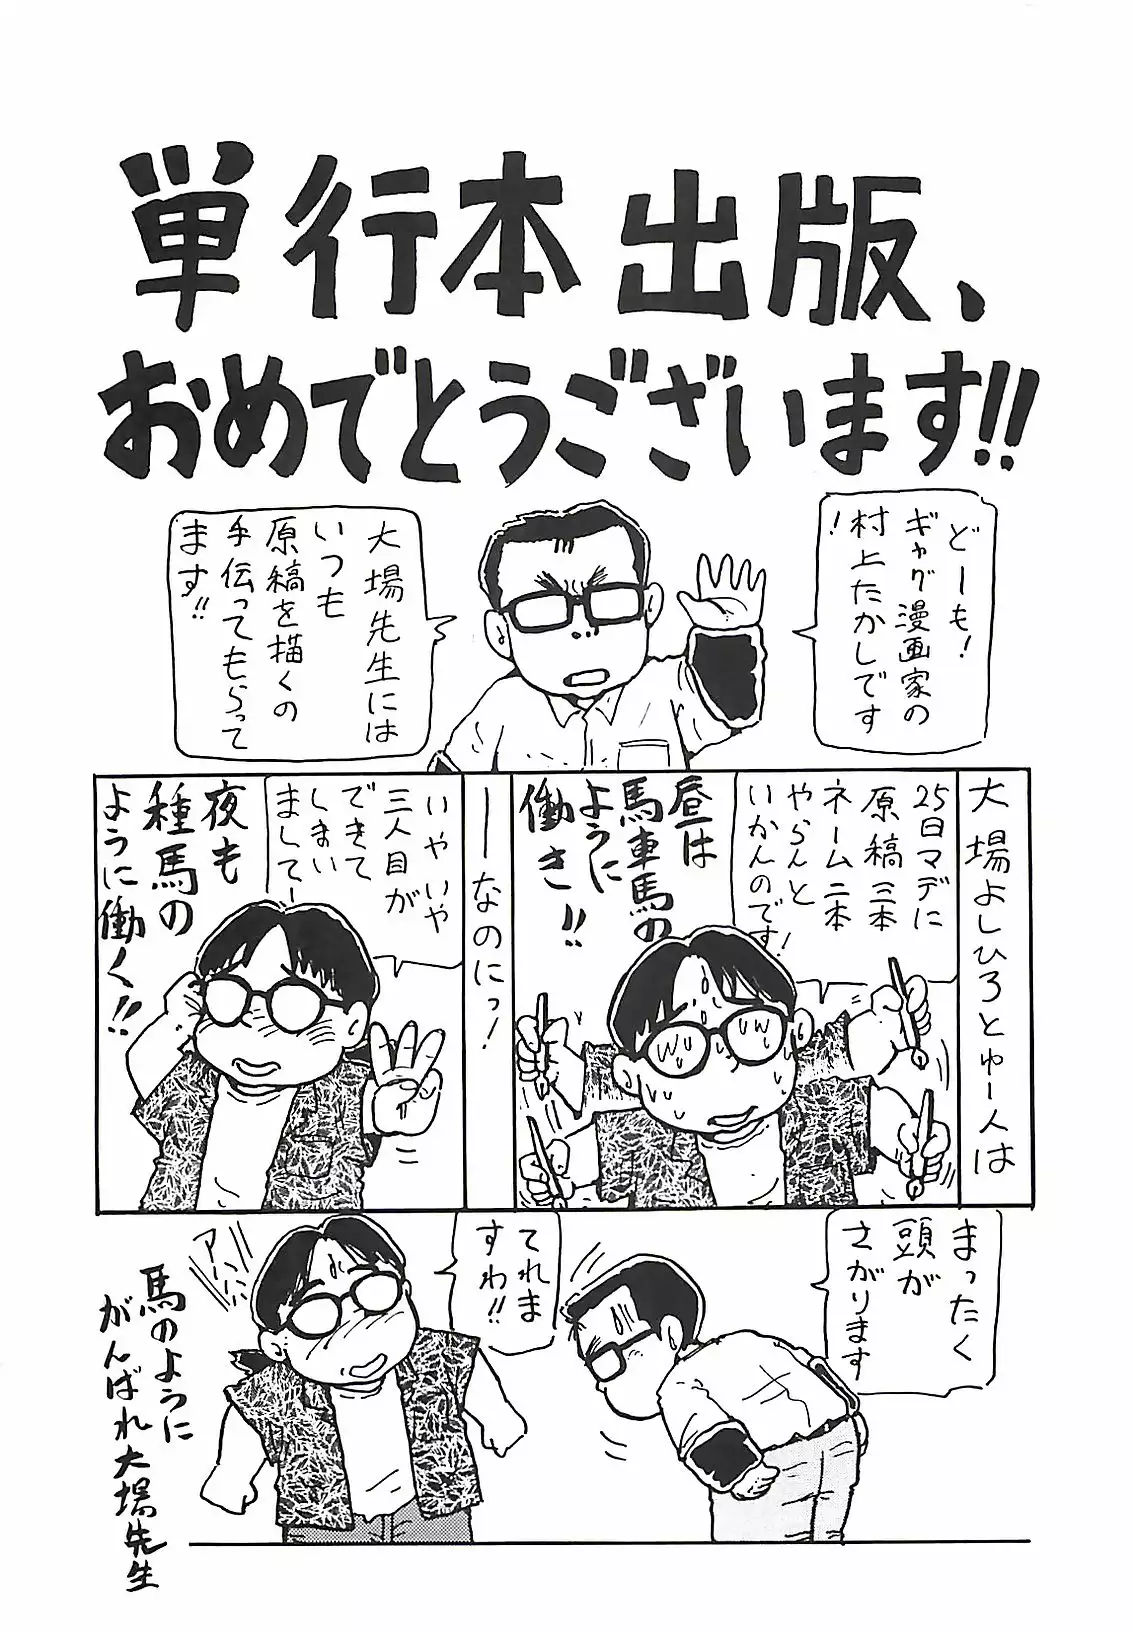 単行本出版、
おめでとうございます!!
どーも!
ギャグ漫画家の
村上たかしです
!
大場先生には
いつも
原稿を描くの
手伝ってもらって
ます!!
大場よしひろとゅー人は
25日マデに
原稿三本
ネーム二本
やらんと
いかんのです!
昼は
馬車馬の
ように
働き!!
ーーなのにっ!
いやいや
三人目が
できて
しまい
ましてー
夜も
種馬の
ように働く!!
まったく
頭が
さがります
てれま
すわ!!
馬のように
がんばれ大場先生